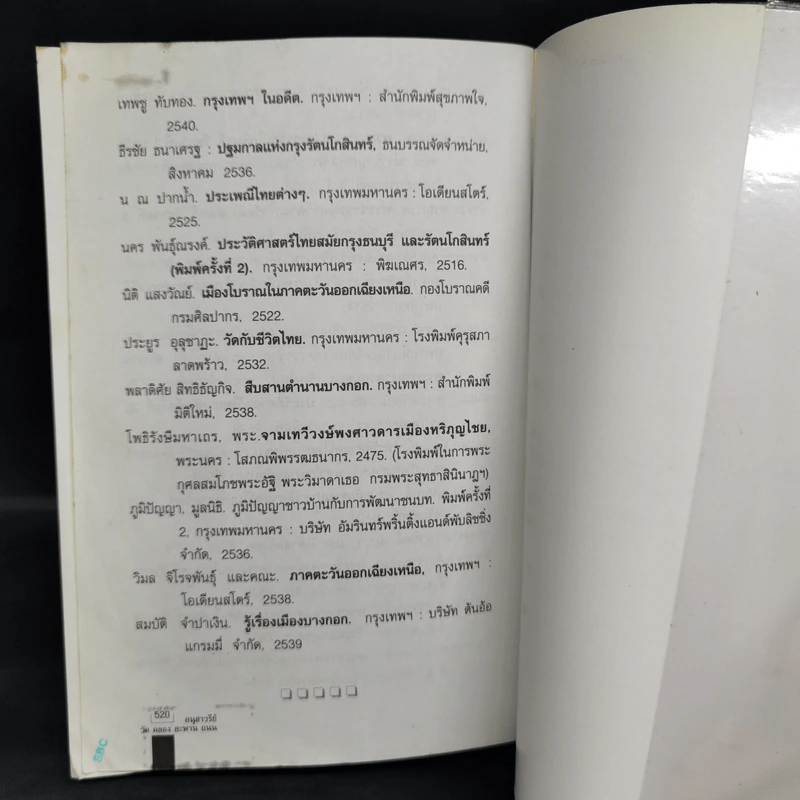 เทพชู ทับทอง. กรุงเทพฯ ในอดีต. กรุงเทพฯ : สำนักพิมพ์สุขภาพใจ,
2540.
ธีรชัย ธนาเศรฐ : ปฐมกาลแห่งกรุงรัตนโกสินทร์, ธนบรรณจัดจำหน่าย,
สิงหาคม 2536.
น ณ ปากน้ำ. ประเพณีไทยต่างๆ. กรุงเทพมหานคร : โอเดียนสโตร์,
2525.
นคร พันธุ์ณรงค์. ประวัติศาสตร์ไทยสมัยกรุงธนบุรี และรัตนโกสินทร์
(พิมพ์ครั้งที่ 2). กรุงเทพมหานคร : พิฆเณศร, 2516.
นิติ แสงวัณย์. เมืองโบราณในภาคตะวันออกเฉียงเหนือ. กองโบราณคดี
กรมศิลปากร, 2522.
ประยูร อุลุชาฏะ. วัดกับชีวิตไทย. กรุงเทพมหานคร : โรงพิมพ์คุรุสภา
ลาดพร้าว, 2532.
พลาดิศัย สิทธิธัญกิจ. สืบสานตำนานบางกอก. กรุงเทพฯ : สำนักพิมพ์
มิติใหม่, 2538.
โพธิรังษีมหาเถร, พระ.จามเทวีวงษ์พงศาวดารเมืองหริภุญไชย,
พระนคร : โสภณพิพรรฒธนากร, 2475. (โรงพิมพ์ในการพระ
กุศลสมโภชพระอัฐิ พระวิมาดาเธอ กรมพระสุทธาสินินาฎฯ)
ภูมิปัญญา, มูลนิธิ. ภูมิปัญญาชาวบ้านกับการพัฒนาชนบท. พิมพ์ครั้งที่
2, กรุงเทพมหานคร : บริษัท อัมรินทร์พริ้นติ้งแอนด์พับลิชชิ่ง
จำกัด, 2536.
วิมล จิโรจพันธุ์ และคณะ. ภาคตะวันออกเฉียงเหนือ, กรุงเทพฯ :
โอเดียนสโตร์, 2538.
สมบัติ จำปาเงิน. รู้เรื่องเมืองบางกอก. กรุงเทพฯ : บริษัท ต้นอ้อ
แกรมมี่ จำกัด, 2539
520 อนุสาวรีย์
วัด คลอง สะพาน ถนน
SBC